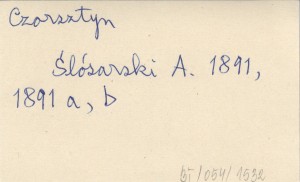 Czorsztyn
Ślósarski A. 1891,
1891 a, b
BT/054/1532